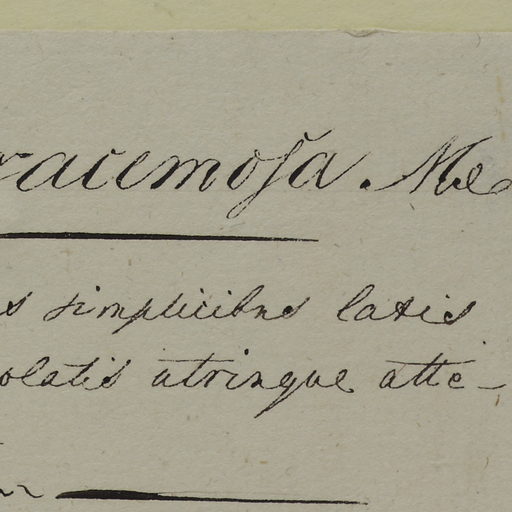 racemosa. Me
s simplicibus latis
olatis utrinque atte-